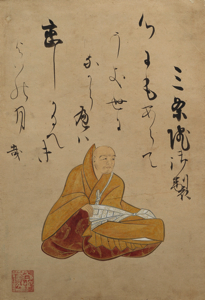 三条院御製
心にも
あらて
うき世に
なからへは
恋し
かるへき
よはの月
哉